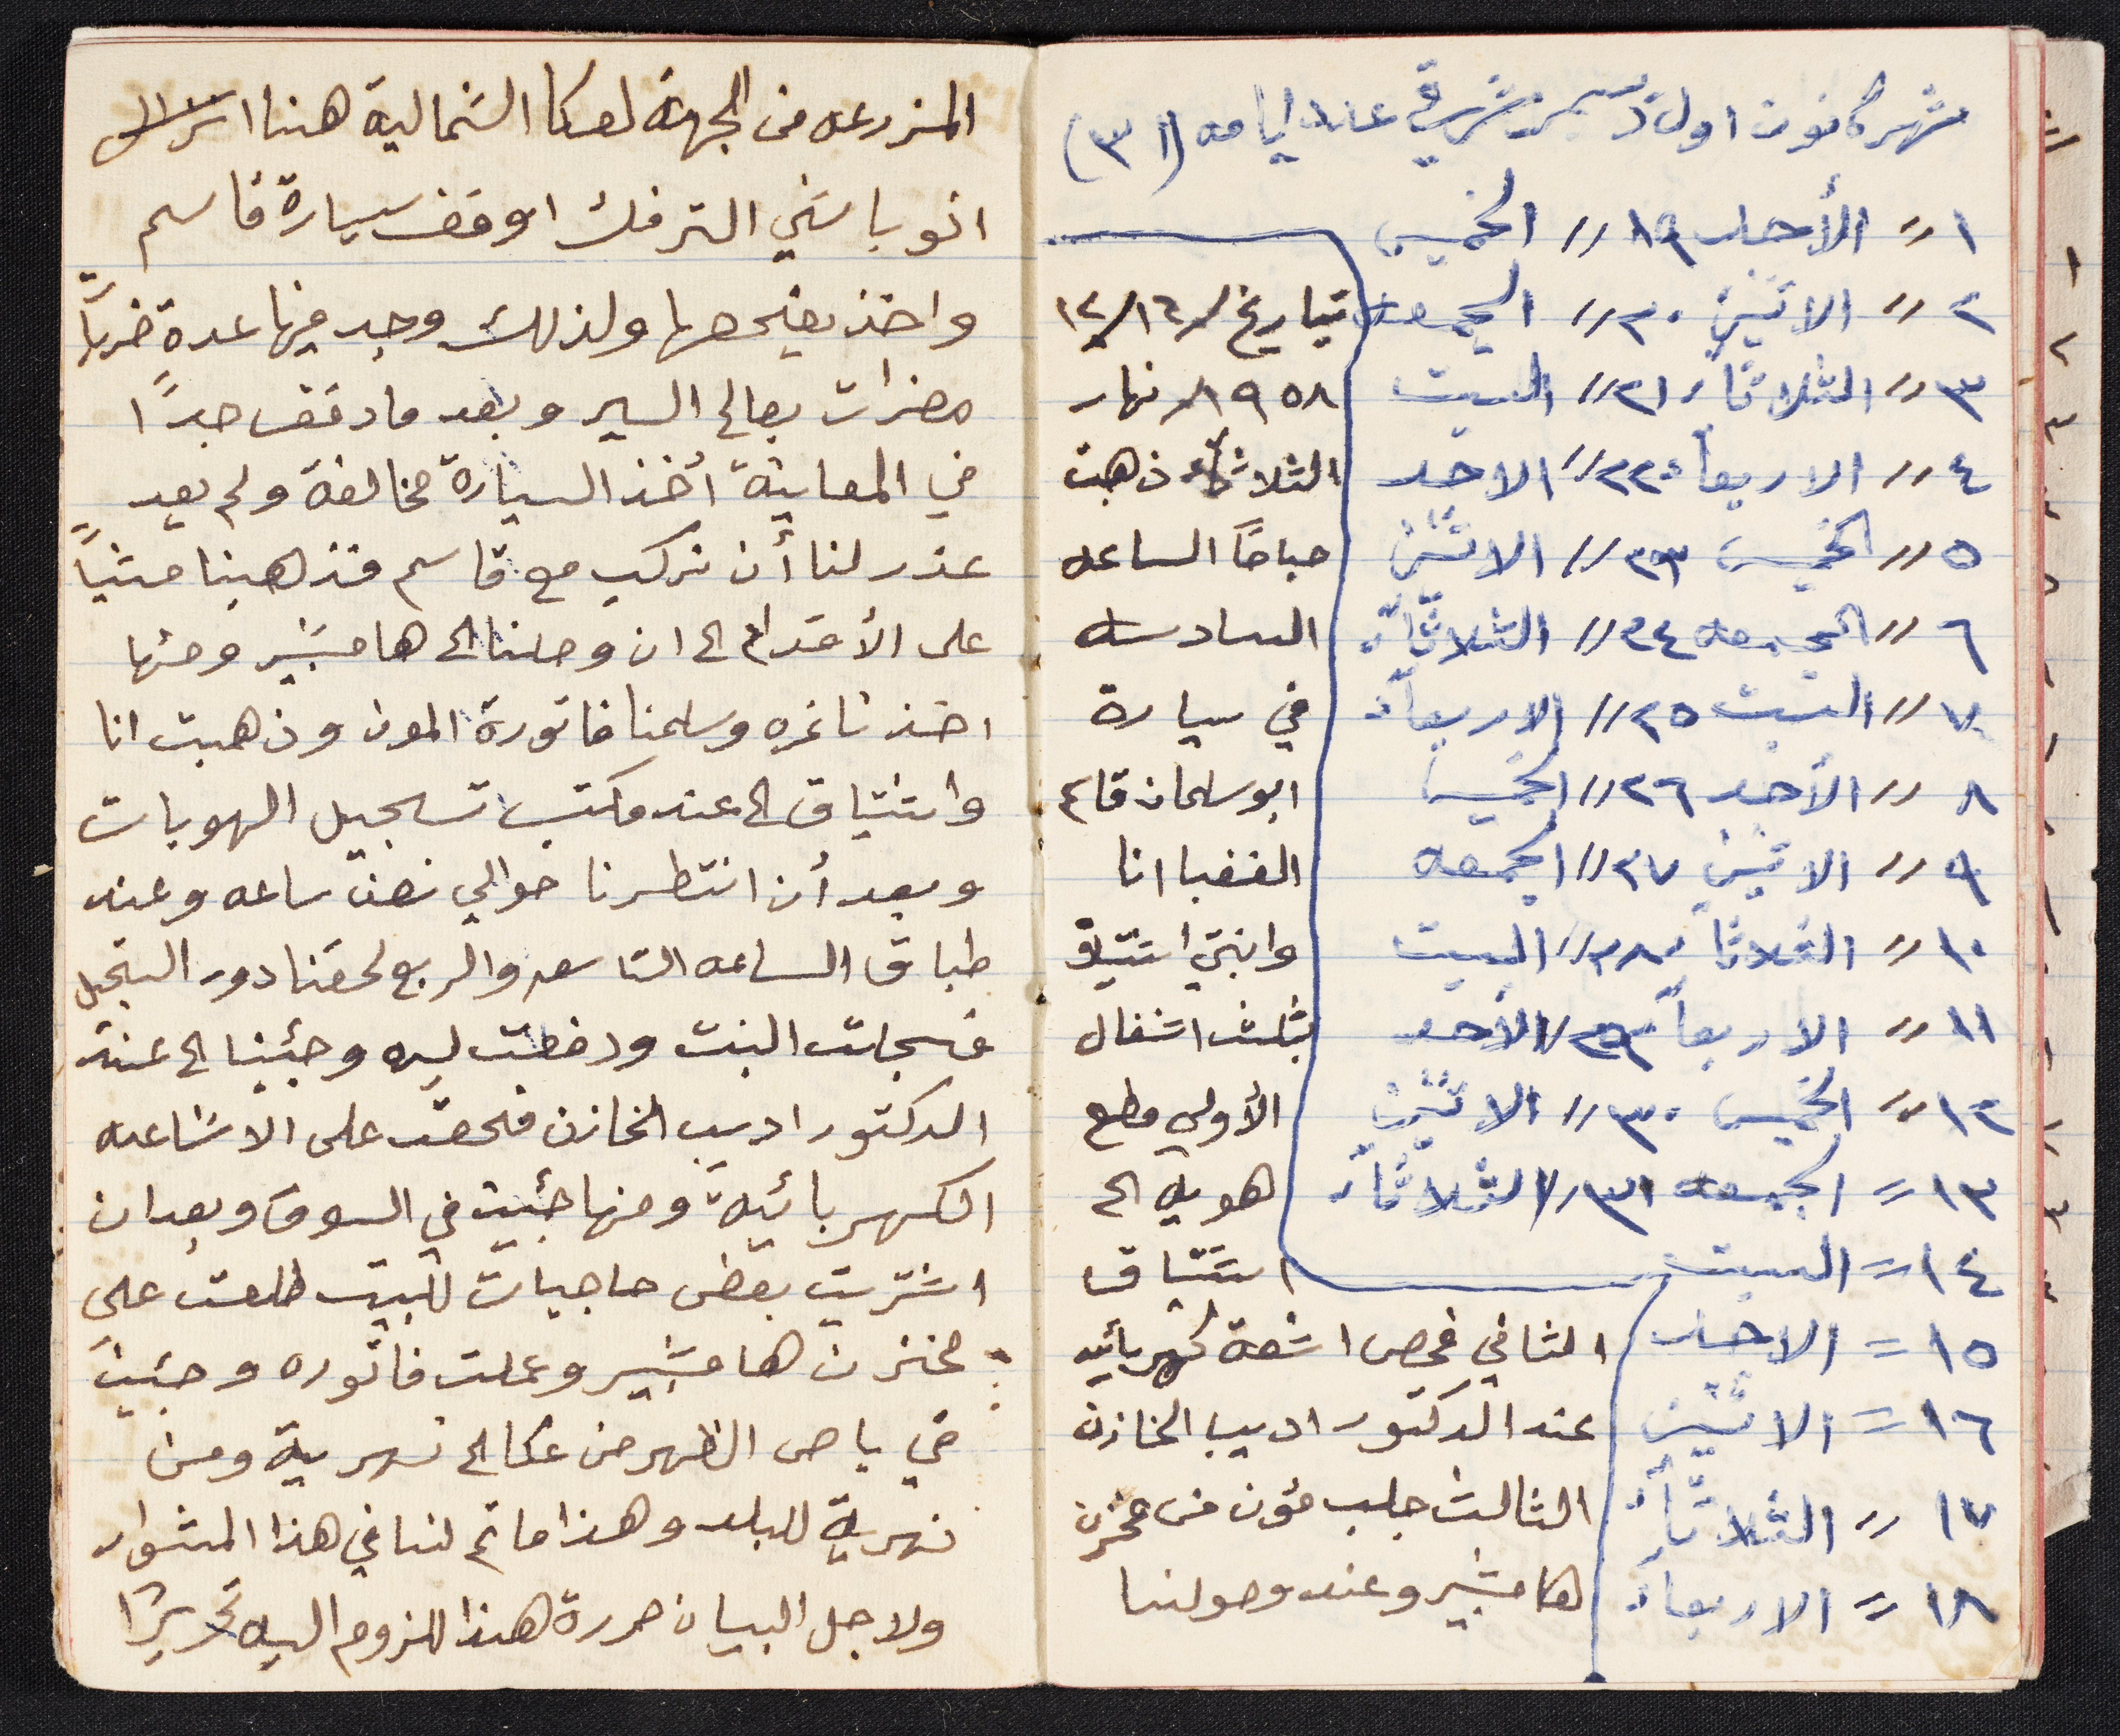 شهر كانون اول دسمبر شرقي عدد ايامه (٣١)
١ = الأحد ١٩ // الخميس
٢ // الاثنين ٢٠ // الجمعه
٣ // الثلاثاء ٢١ // السبت
٤ // الاربعاء ٢٢ // الاحد
٥ // الخميس ٢٣ // الاثنين
٦ // الجمعه ٢٤ // الثلاثاء
٧ // السبت ٢٥ // الاربعاء
٨ // الأحد ٢٦ // الخميس
٩ // الاثنين ٢٧ // الجمعه
١٠ // الثلاثاء ٢٨ // السبت
١١ // الاربعاء ٢٩ // الأحد
١٢ // الخميس ٣٠ // الاثنين
١٣ = الجمعه ٣١ // الثلاثاء
١٤ = السبت
١٥ = الاحد
١٦ = الاثنين
١٧ // الثلاثاء
١٨ = الاربعاء
بتاريخ ١٦/١٢/
١٩٥٨ نهار
الثلاثاء ذهبت
صباحًا الساعه
السادسه
في سيارة
ابو سلمان قاسم
الغضبا انا
وابنتي اشتياق
بثلث اشغال
الأولى قطع
هويه الى
اشتياق
الثاني فحص اشعة كهربائيه
عند الدكتور اديب الخازن
الثالث جلب مؤن من مخزن
هامشبير وعند وصولنا
المزرعه من الجهة لعكا الشمالية هنا
انو باشي الترفك اوقف سيارة قاسم
واخذ يفحصها ولذلك وجد فيها عدة
مضرات بصالح السير وبعد ما دقق جدًا
في المعاينة أخذ السيارة مخالفة ولم يعد
عذر لنا أن نركب مع قاسم فذهبنا مشياً
على الأقدام الى ان وصلنا الى هامشبير ومنها
اخذنا نمره وسلمنا فاتورة المون وذهبت انا
واشتياق الى عند مكتب تسجيل الهويات
وبعد أن انتظرنا حوالي نصف ساعه وعند
طباق الساعه التاسعه والربع لحقنا دور التسجيل
فسجلت البنت ودفعت ليره وجئنا الى عند
الدكتور اديب الخازن فحصت على الاشاعه
الكهربائية ومنها جئت في السوق وبعد ان
اشتريت بعض حاجيات للبيت طلعت على
مخزن هامشبير وعملت فاتوره وجئت
في باص الظهر من عكا الى نهرية ومن
نهرية للبلد وهذا ما تم لنا في هذا المشوار
ولاجل البيان حررة هذا للزوم اليه تحريرًا